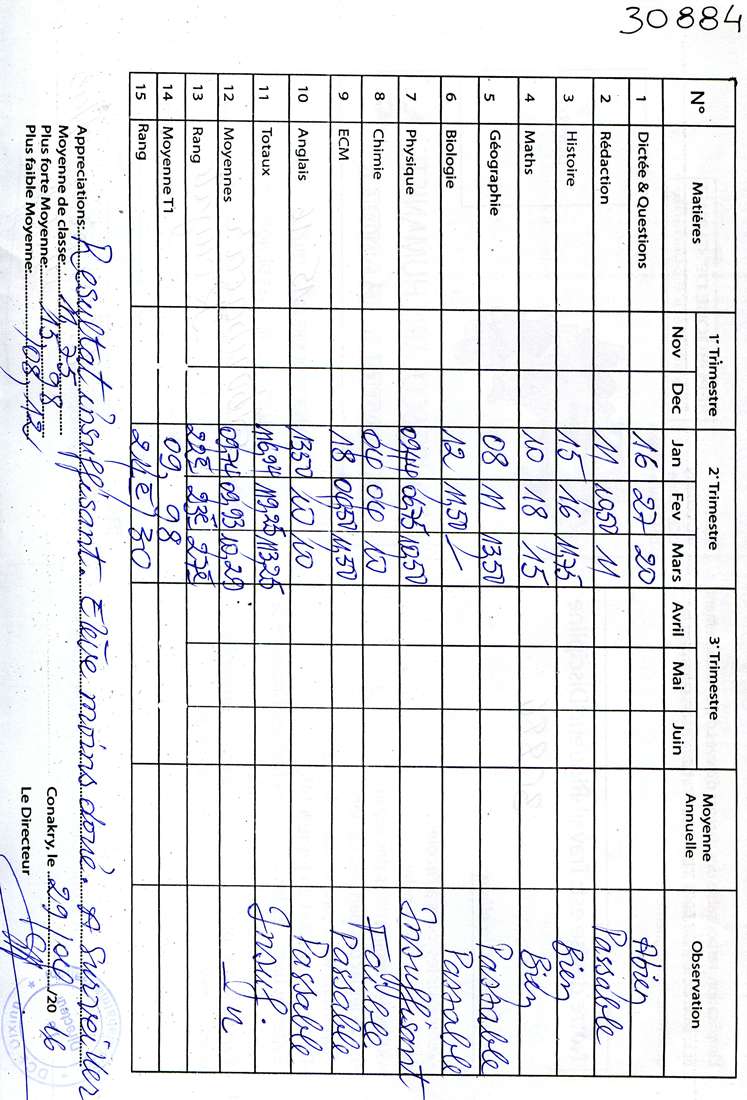 30884
N° Matières 1° Trimestre 2° Trimestre 3° Trimestre Moyenne Annuelle Observation
Nov Dec Jan Fev Mars Avril Mai Juin
1 Dictée & Questions 16 27 20 Abien
2 Rédaction 11 10,50 11 Passable
3 Histoire 15 16 11,75 Bien
4 Maths 10 18 15 Bien
5 Géographie 08 11 13,50 Passable
6 Biologie 12 11,50 / Passable
7 Physique 06,75 10,50 Insuffisant
8 Chimie 04 04 10 Faible
9 ECM 18 11,50 Passable
10 Anglais 13,50 10 10 Passable
11 Totaux 116,94 119,25 113,25 Insuf.
12 Moyennes 09,74 09,93 10,29
13 Rang 22è 23è 27è
14 Moyenne T1 09,98
15 Rang 21è/30
Appreciations: Resultat insuffisant. Elève moins doué. A Surveiller
Moyenne de classe: 11,75
Plus forte Moyenne: 15,98
Plus faible Moyenne: 08,12
Conakry, le 29/04/20 16
Le Directeur